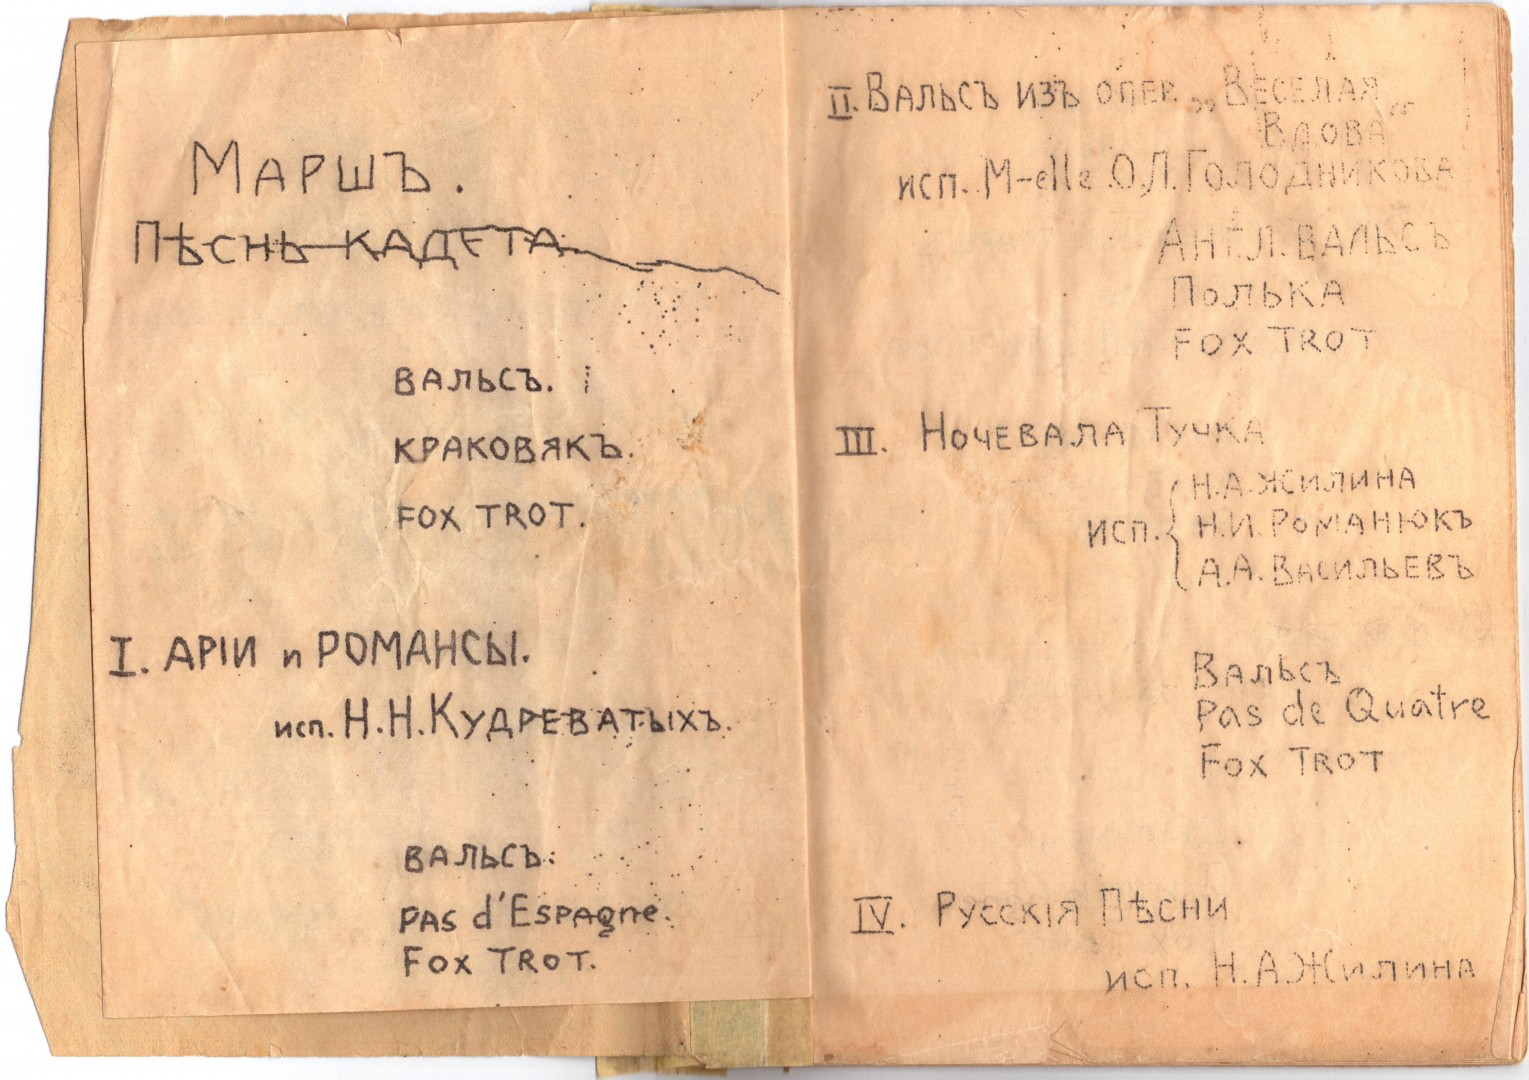 Маршъ.
Пѣснь кадета
вальсъ.
краковякъ.
fox trot.
I. Аріи и романсы.
исп. Н.Н. Кудреватыхъ.
вальсъ.
pas d'Espagne.
Fox Trot.
II. Вальсъ изъ опер. „Веселая
Вдова“
исп. M-elle О.Л. Голодникова
Англ. вальсъ
Полька
Fox Trot
III. Ночевала Тучка
Н.А. Жилина
исп. { Н.И. Романюкъ
А.А. Васильевъ
Вальсъ
Pas de Quatre
Fox Trot
IV. Русскія Пѣсни
исп. Н.А. Жилина